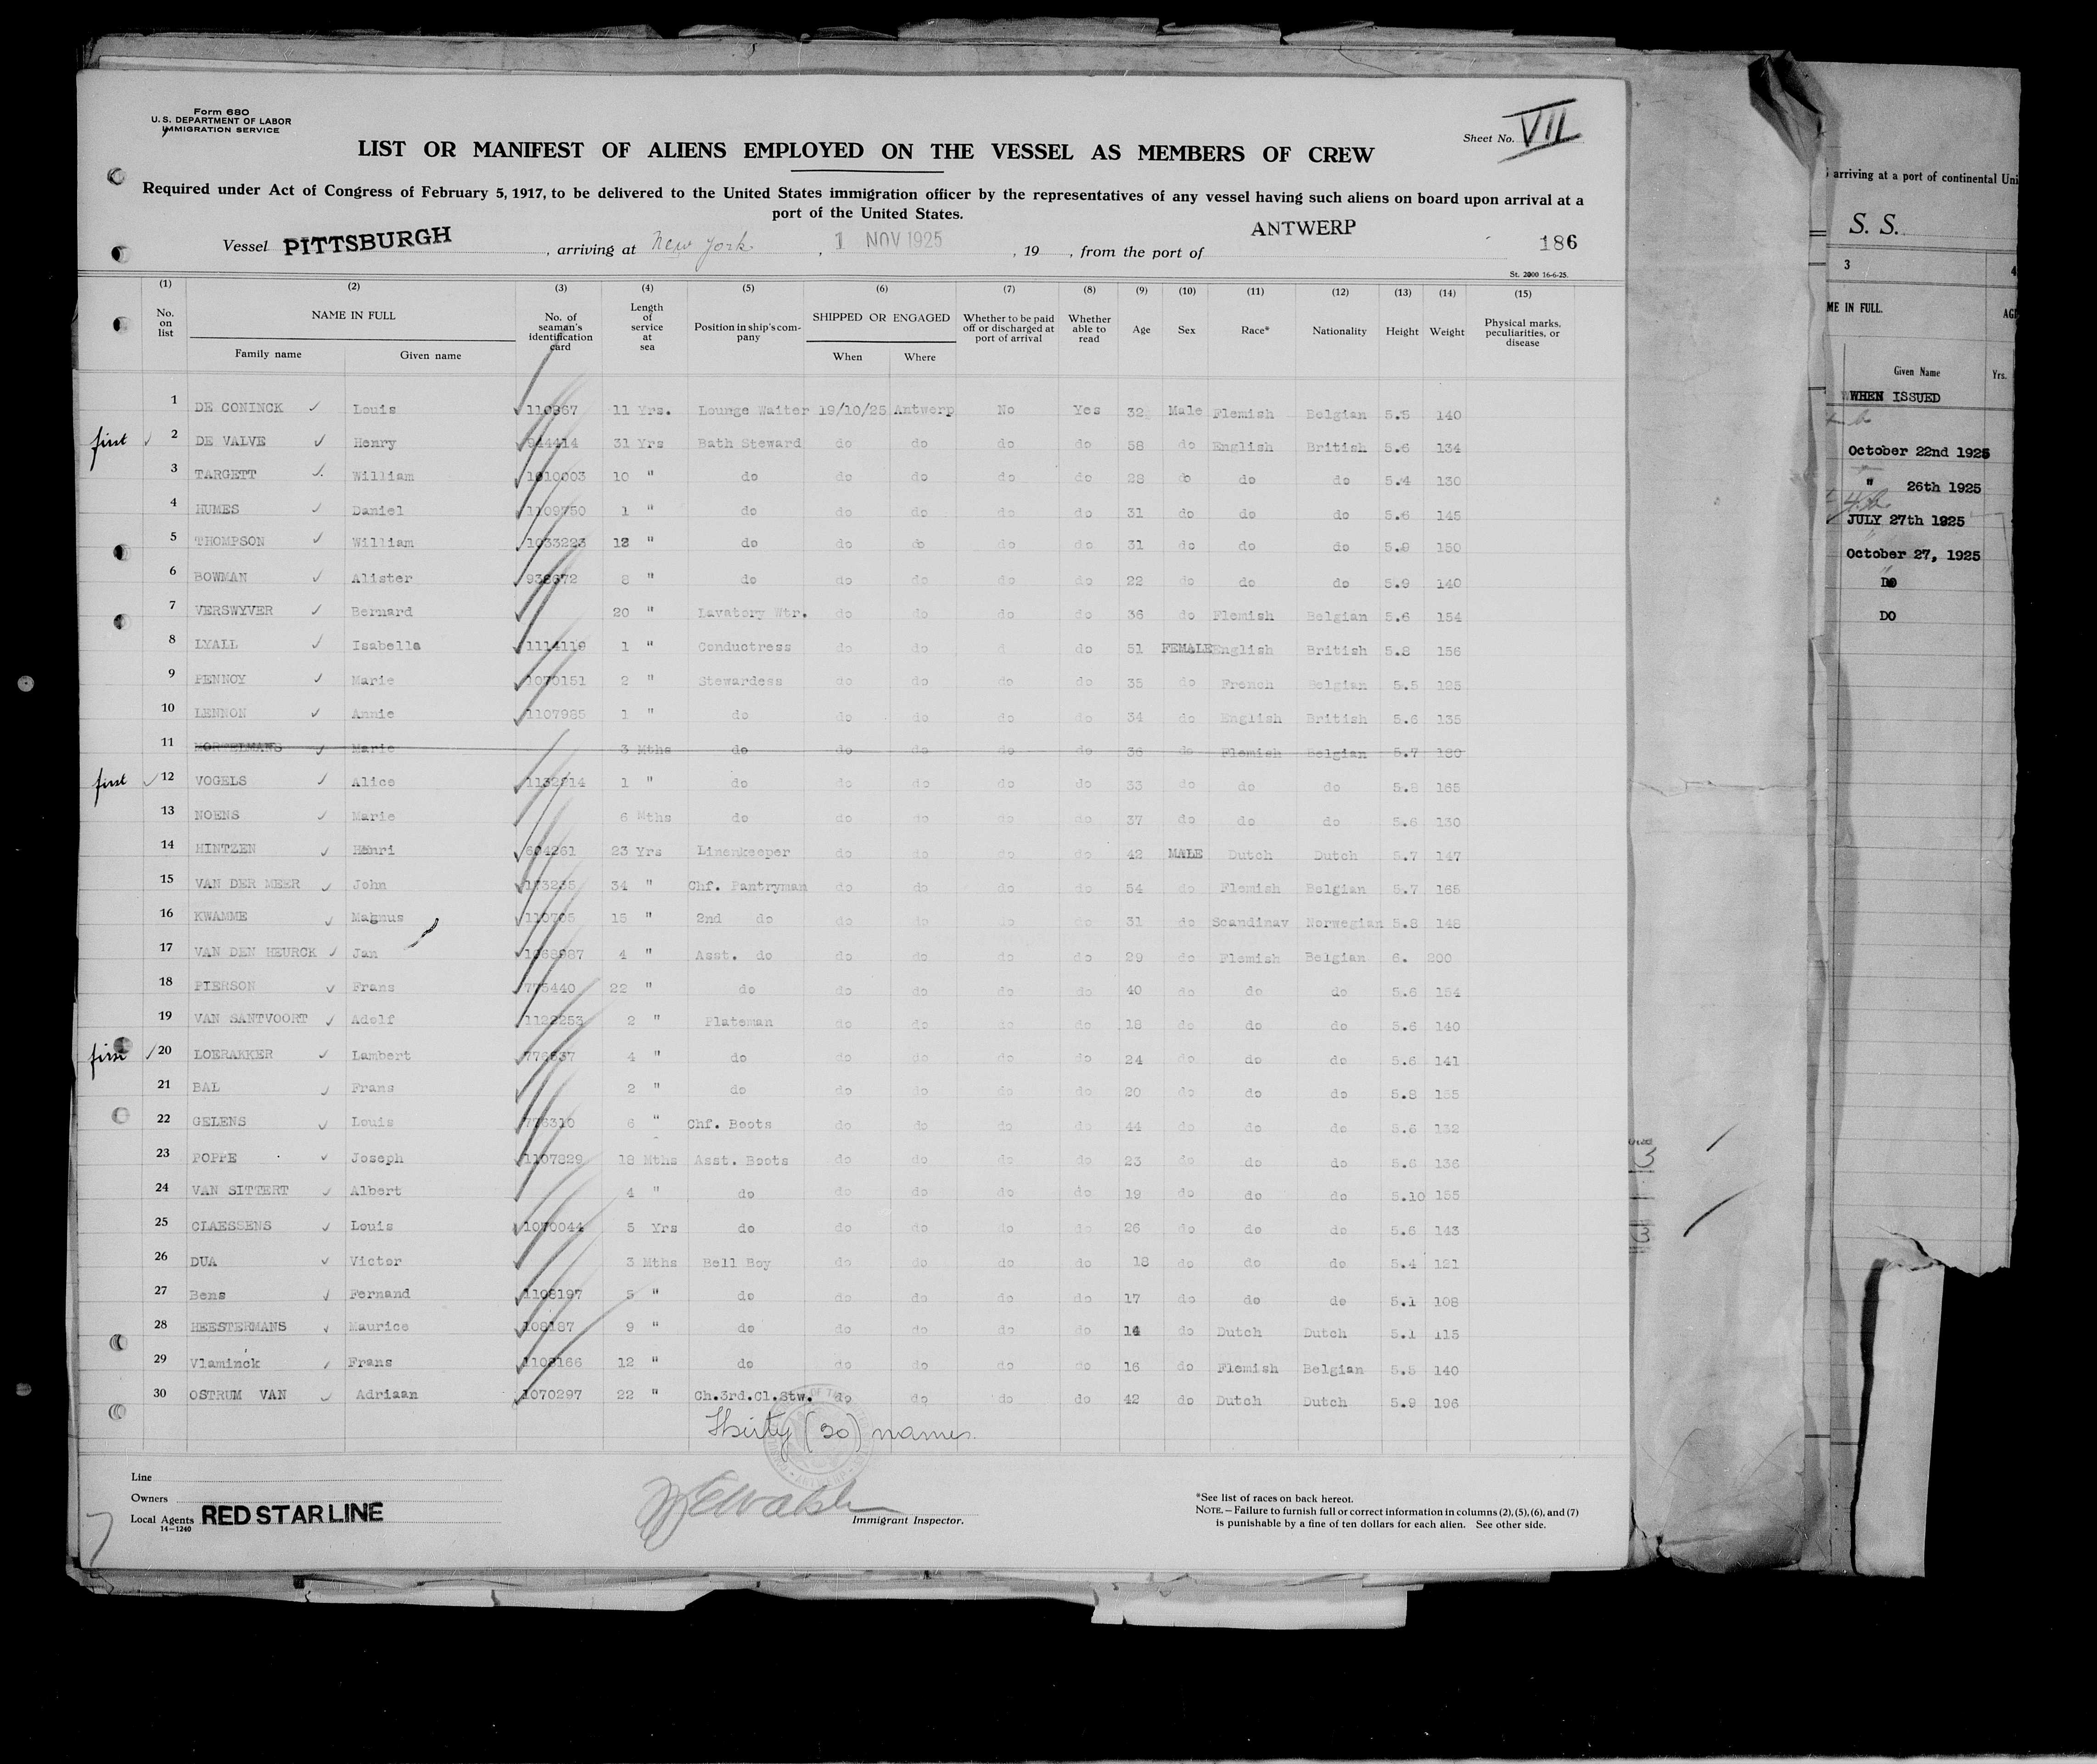 Form 680
U. S. DEPARTMENT OF LABOR
IMMIGRATION SERVICE
Sheet No. VII
LIST OR MANIFEST OF ALIENS EMPLOYED ON THE VESSEL AS MEMBERS OF CREW
Required under Act of Congress of February 5, 1917, to be delivered to the United States immigration officer by the representatives of any vessel having such aliens on board upon arrival at a
port of the United States.
Vessel PITTSBURGH, arriving at New York, 1 NOV 1925, 19 , from the port of ANTWERP 186
St. 2000 16-6-25.
(1) (2) (3) (4) (5) (6) (7) (8) (9) (10) (11) (12) (13) (14) (15)
No. on list NAME IN FULL Family name Given name No. of seaman's identification card Length of service at sea Position in ship's company SHIPPED OR ENGAGED When Where Whether to be paid off or discharged at port of arrival Whether able to read Age Sex Race* Nationality Height Weight Physical marks, peculiarities, or disease
1 DE CONINCK Louis 110867 11 Yrs. Lounge Waiter 19/10/25 Antwerp No Yes 32 Male Flemish Belgian 5.5 140
first 2 DE VALVE Henry 944414 31 Yrs Bath Steward do do do do 58 do English British 5.6 134
3 TARGETT William 1010003 10 " do do do do do 28 do do do 5.4 130
4 HUMES Daniel 1109750 1 " do do do do do 31 do do do 5.6 145
5 THOMPSON William 1033223 12 " do do do do do 31 do do do 5.9 150
6 BOWMAN Alister 938672 8 " do do do do do 22 do do do 5.9 140
7 VERSWYVER Bernard 20 " Lavatory Wtr. do do do do 36 do Flemish Belgian 5.6 154
8 LYALL Isabella 1114119 1 " Conductress do do d do 51 FEMALE English British 5.8 156
9 PENNOY Marie 1070151 2 " Stewardess do do do do 35 do French Belgian 5.5 125
10 LENNON Annie 1107985 1 " do do do do do 34 do English British 5.6 135
11 MORTELMANS Marie 3 Mths do do do do do 36 do Flemish Belgian 5.7 180
first 12 VOGELS Alice 1132814 1 " do do do do do 33 do do do 5.8 165
13 NOENS Marie 6 Mths do do do do do 37 do do do 5.6 130
14 HINTZEN Henri 604261 23 Yrs Linenkeeper do do do do 42 MALE Dutch Dutch 5.7 147
15 VAN DER MEER John 173235 34 " Chf. Pantryman do do do do 54 do Flemish Belgian 5.7 165
16 KWAMME Magnus 110705 15 " 2nd do do do do do 31 do Scandinav Norwegian 5.8 148
17 VAN DEN HEURCK Jan 1068987 4 " Asst. do do do do do 29 do Flemish Belgian 6. 200
18 PIERSON Frans 775440 22 " do do do do do 40 do do do 5.6 154
19 VAN SANTVOORT Adolf 1122253 2 " Plateman do do do do 18 do do do 5.6 140
first 20 LOERAKKER Lambert 776837 4 " do do do do do 24 do do do 5.6 141
21 BAL Frans 2 " do do do do do 20 do do do 5.8 155
22 GELENS Louis 776310 6 " Chf. Boots do do do do 44 do do do 5.6 132
23 POPPE Joseph 1107829 18 Mths Asst. Boots do do do do 23 do do do 5.6 136
24 VAN SITTERT Albert 4 " do do do do do 19 do do do 5.10 155
25 CLAESSENS Louis 1070044 5 Yrs do do do do do 26 do do do 5.6 143
26 DUA Victor 3 Mths Bell Boy do do do do 18 do do do 5.4 121
27 Bens Fernand 1108197 5 " do do do do do 17 do do do 5.1 108
28 HEESTERMANS Maurice 108187 9 " do do do do do 14 do Dutch Dutch 5.1 115
29 Vlaminck Frans 1108166 12 " do do do do do 16 do Flemish Belgian 5.5 140
30 OSTRUM VAN Adriaan 1070297 22 " Ch.3rd.Cl.Stw. do do do do 42 do Dutch Dutch 5.9 196
Thirty (30) names.
Line
Owners
Local Agents RED STAR LINE
14-1240
Immigrant Inspector.
*See list of races on back hereof.
NOTE.—Failure to furnish full or correct information in columns (2), (5), (6), and (7)
is punishable by a fine of ten dollars for each alien. See other side.
arriving at a port of continental Uni
S. S.
3 4
ME IN FULL. AG
Given Name Yrs.
WHEN ISSUED
October 22nd 1925
" 26th 1925
JULY 27th 1925
October 27, 1925
DO
DO